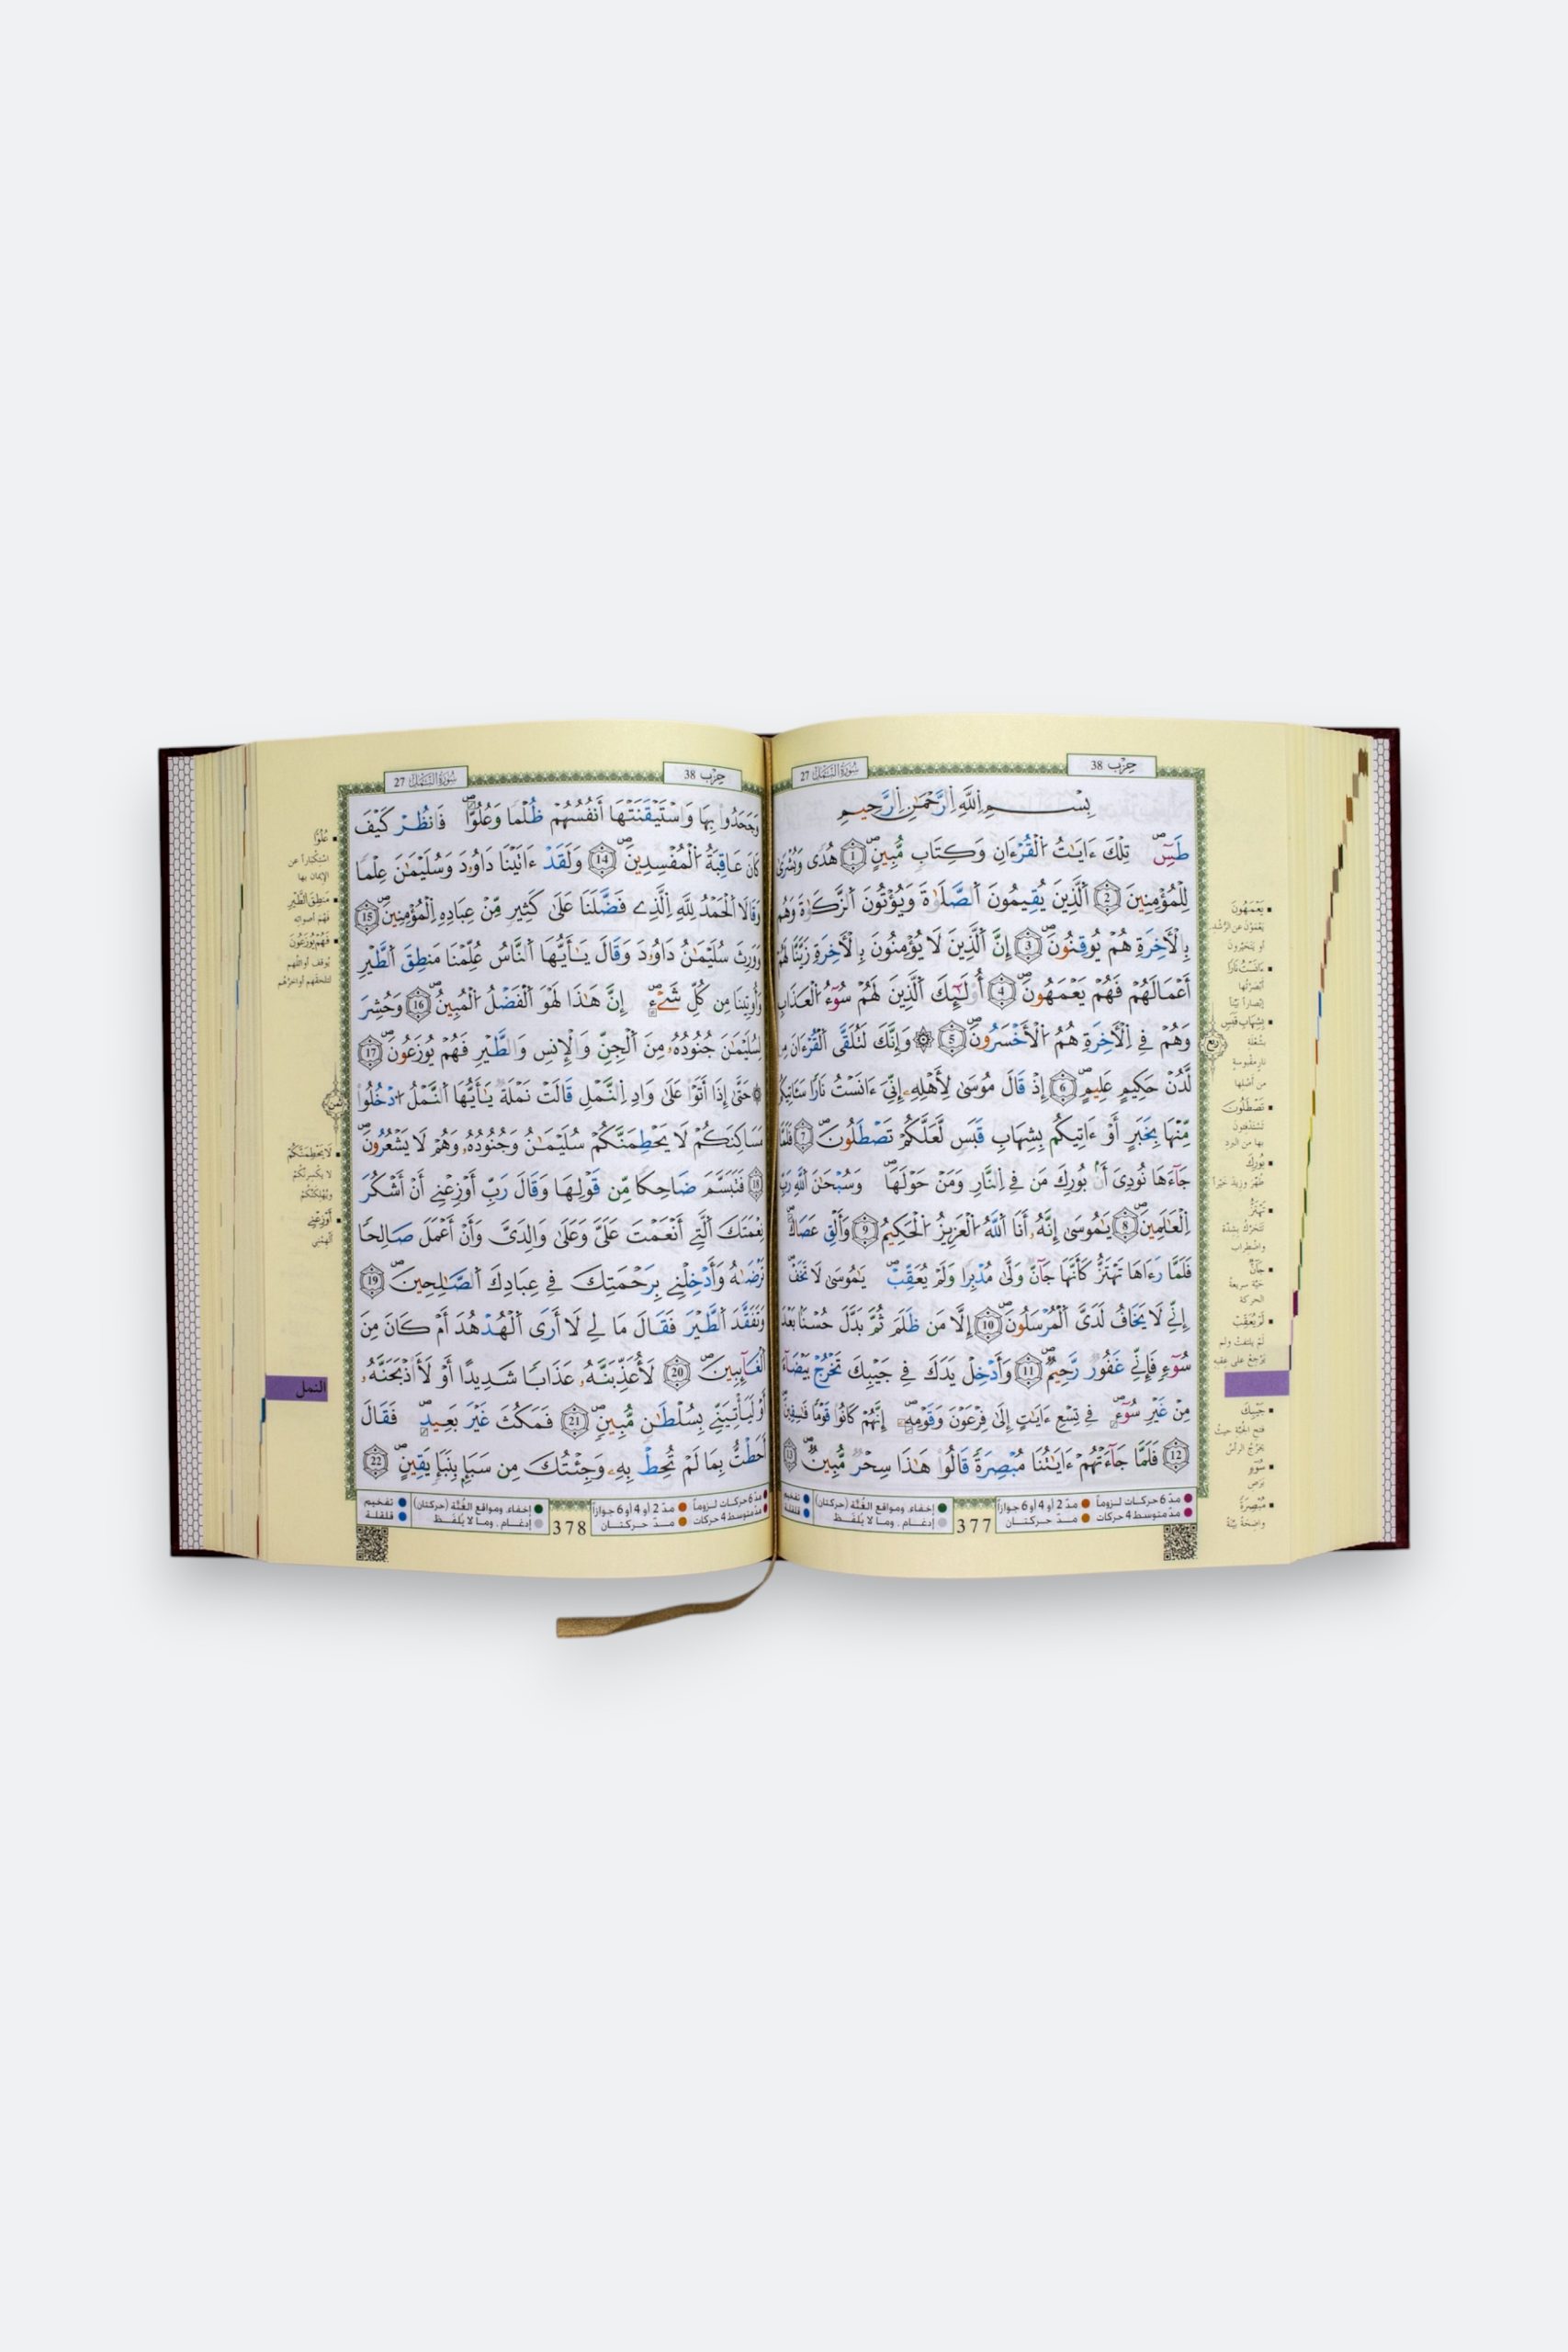 حِزْب 38
سُورَةُ النَّمْلِ 27
بِسْمِ اِللَّهِ اِلرَّحْمَٰنِ اِلرَّحِيمِ
طَسِٓۖ تِلْكَ ءَايَٰتُ اُ۬لْقُرْءَانِ وَكِتَابٖ مُّبِينٍۖ 1 هُدىٗ وَبُشْر۪يٰ
لِلْمُؤْمِنِينَ 2 اَ۬لذِينَ يُقِيمُونَ اَ۬لصَّلَوٰةَ وَيُوتُونَ اَ۬لزَّكَوٰةَ وَهُم
بِالَاخِرَةِ هُمْ يُوقِنُونَۖ 3 إِنَّ اَ۬لذِينَ لَا يُومِنُونَ بِالَاخِرَةِ زَيَّنَّا لَهُمُۥٓ
أَعْمَٰلَهُمْ فَهُمْ يَعْمَهُونَۖ 4 أُوْلَٰٓئِكَ اَ۬لذِينَ لَهُمْ سُوٓءُ اُ۬لْعَذَابِ
وَهُمْ فِے اِ۬لَاخِرَةِ هُمُ اُ۬لَاخْسَرُونَۖ 5 ۞ وَإِنَّكَ لَتُلَقَّى اَ۬لْقُرْءَانَ مِن
لَّدُنْ حَكِيمٍ عَلِيمٍۖ 6 إِذْ قَالَ مُوس۪يٰ لِأَهْلِهِۦٓ إِنِّيَ ءَانَسْتُ نَاراٗ سَـَٔاتِيكُم
مِّنْهَا بِخَبَرٍ أَوَ اٰتِيكُم بِشِهَابِ قَبَسٖ لَّعَلَّكُمْ تَصْطَلُونَۖ 7 فَلَمَّا
جَآءَهَا نُودِيَ أَنۢ بُورِكَ مَن فِے اِ۬لنّ۪ارِ وَمَنْ حَوْلَهَاۖ وَسُبْحَٰنَ اَ۬للَّهِ رَبِّ
اِ۬لْعَٰلَمِينَۖ 8 يَٰمُوس۪يٰٓ إِنَّهُۥٓ أَنَا اَ۬للَّهُ اُ۬لْعَزِيزُ اُ۬لْحَكِيمُ 9 وَأَلْقِ عَصَاكَۖ
فَلَمَّا ر۪ء۪اهَا تَهْتَزُّ كَأَنَّهَا جَآنّٞ وَلّ۪يٰ مُدْبِراٗ وَلَمْ يُعَقِّبْۖ يَٰمُوس۪يٰ لَا تَخَفِۖ
اِنِّے لَا يَخَافُ لَدَيَّ اَ۬لْمُرْسَلُونَۖ 10 إِلَّا مَن ظَلَمَ ثُمَّ بَدَّلَ حُسْناَۢ بَعْدَ
سُوٓءٖ فَإِنِّے غَفُورٞ رَّحِيمٞۖ 11 وَأَدْخِلْ يَدَكَ فِے جَيْبِكَ تَخْرُجْ بَيْضَآءَ
مِنْ غَيْرِ سُوٓءٖۖ فِے تِسْعِ ءَايَٰتٍ اِلَىٰ فِرْعَوْنَ وَقَوْمِهِۦٓۖ إِنَّهُمْ كَانُواْ قَوْماٗ فَٰسِقِينَۖ
12 فَلَمَّا جَآءَتْهُمُۥٓ ءَايَٰتُنَا مُبْصِرَةٗ قَالُواْ هَٰذَا سِحْرٞ مُّبِينٞۖ 13
يَعْمَهُونَ
ءَانَسْتُ نَاراً
بِشِهَابِ قَبَسٍ
تَصْطَلُونَ
بُورِكَ
تَهْتَزُّ
جَآنٌّ
لَمْ يُعَقِّبْ
جَيْبِكَ
سُوٓءٍ
مُبْصِرَةً
مدّ 6 حركات لزوماً مدّ 2 أو 4 أو 6 جوازاً
مدّ متوسط 4 حركات مدّ حركتان
377
إخفاء ومواقع الغُنّة (حركتان) تفخيم
إدغام . وما لا يُلفَظ قلقلة
حِزْب 38
سُورَةُ النَّمْلِ 27
وَجَحَدُواْ بِهَا وَاسْتَيْقَنَتْهَآ أَنفُسُهُمْ ظُلْماٗ وَعُلُوّاٗۖ فَانظُرْ كَيْفَ
كَانَ عَٰقِبَةُ اُ۬لْمُفْسِدِينَۖ 14 وَلَقَدَ اٰتَيْنَا دَاوُۥدَ وَسُلَيْمَٰنَ عِلْماٗ
وَقَالَا اَ۬لْحَمْدُ لِلهِ اِ۬لذِے فَضَّلَنَا عَلَىٰ كَثِيرٖ مِّنْ عِبَادِهِ اِ۬لْمُومِنِينَۖ 15
وَوَرِثَ سُلَيْمَٰنُ دَاوُۥدَ وَقَالَ يَٰٓأَيُّهَا اَ۬لنَّاسُ عُلِّمْنَا مَنطِقَ اَ۬لطَّيْرِ
وَأُوتِينَا مِن كُلِّ شَےْءٍۖ اِنَّ هَٰذَا لَهُوَ اَ۬لْفَضْلُ اُ۬لْمُبِينُۖ 16 وَحُشِرَ
لِسُلَيْمَٰنَ جُنُودُهُۥ مِنَ اَ۬لْجِنِّ وَالِانسِ وَالطَّيْرِ فَهُمْ يُوزَعُونَۖ 17
۞ حَتَّىٰٓ إِذَآ أَتَوْاْ عَلَىٰ وَادِ اِ۬لنَّمْلِ قَالَتْ نَمْلَةٞ يَٰٓأَيُّهَا اَ۬لنَّمْلُ اُ۟دْخُلُواْ
مَسَٰكِنَكُمْ لَا يَحْطِمَنَّكُمْ سُلَيْمَٰنُ وَجُنُودُهُۥ وَهُمْ لَا يَشْعُرُونَۖ
18 فَتَبَسَّمَ ضَاحِكاٗ مِّن قَوْلِهَا وَقَالَ رَبِّ أَوْزِعْنِيَ أَنَ اَشْكُرَ
نِعْمَتَكَ اَ۬لتِےٓ أَنْعَمْتَ عَلَيَّ وَعَلَىٰ وَٰلِدَيَّ وَأَنَ اَعْمَلَ صَٰلِحاٗ
تَرْض۪يٰهُ وَأَدْخِلْنِے بِرَحْمَتِكَ فِے عِبَادِكَ اَ۬لصَّٰلِحِينَۖ 19
وَتَفَقَّدَ اَ۬لطَّيْرَ فَقَالَ مَا لِے لَآ أَرَى اَ۬لْهُدْهُدَ أَمْ كَانَ مِنَ
اَ۬لْغَآئِبِينَۖ 20 لَأُعَذِّبَنَّهُۥ عَذَاباٗ شَدِيداً اَوْ لَأَاْذْبَحَنَّهُۥٓ
أَوْ لَيَأْتِيَنِّے بِسُلْطَٰنٖ مُّبِينٖۖ 21 فَمَكُثَ غَيْرَ بَعِيدٖۖ فَقَالَ
أَحَطتُّ بِمَا لَمْ تُحِطْ بِهِۦ وَجِئْتُكَ مِن سَبَإِۢ بِنَبَإٖ يَقِينٍۖ 22
عُلُوّاً
اسْتِكْبَاراً عن
الإيمان بها
مَنطِقَ الطَّيْرِ
فَهْمَ أصواته
فَهُمْ يُوزَعُونَ
لَا يَحْطِمَنَّكُمْ
لا يكسِرنَّكُمْ
ويُهْلِكَنَّكُمْ
أَوْزِعْنِي
ألْهِمْنِي
النمل
مدّ 6 حركات لزوماً مدّ 2 أو 4 أو 6 جوازاً
مدّ متوسط 4 حركات مدّ حركتان
378
إخفاء ومواقع الغُنّة (حركتان) تفخيم
إدغام . وما لا يُلفَظ قلقلة